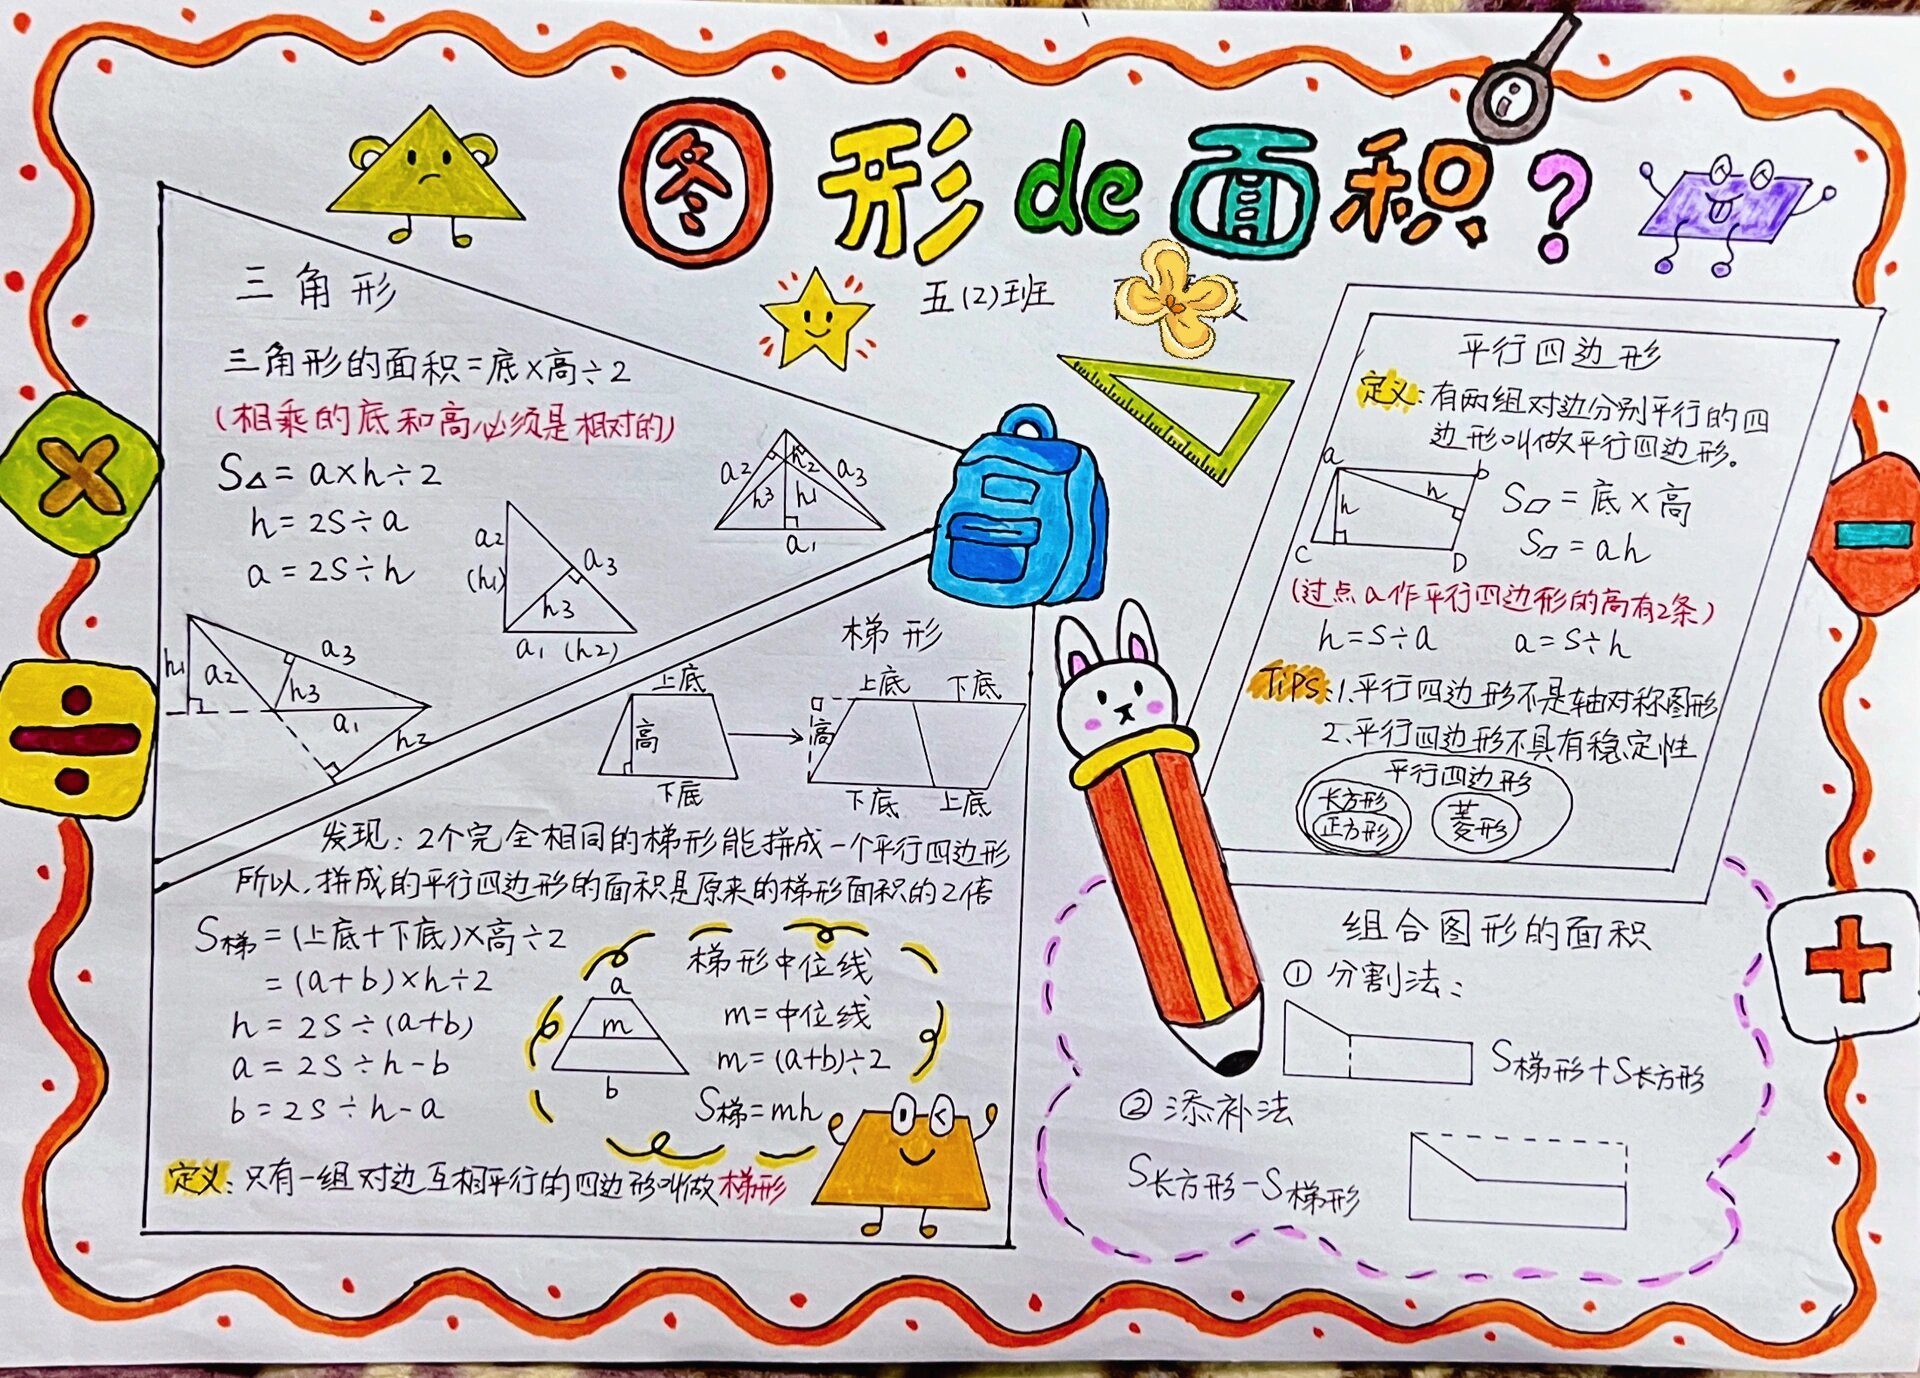 图形de面积?
五(2)班
三角形
三角形的面积=底×高÷2
(相乘的底和高必须是相对的)
S△=a×h÷2
h=2S÷a
a=2S÷h
a2
h2
a3
h3
h1
a1
a2
(h1)
a3
h3
a1 (h2)
h1
a2
a3
h3
a1
h2
梯形
上底
高
下底
上底 下底
高
下底 上底
发现:2个完全相同的梯形能拼成一个平行四边形
所以,拼成的平行四边形的面积是原来的梯形面积的2倍
S梯=(上底+下底)×高÷2
=(a+b)×h÷2
h=2S÷(a+b)
a=2S÷h-b
b=2S÷h-a
梯形中位线
a
m
b
m=中位线
m=(a+b)÷2
S梯=mh
定义:只有一组对边互相平行的四边形叫做梯形
平行四边形
定义:有两组对边分别平行的四
边形叫做平行四边形。
a
b
h
h
C
D
S▱=底×高
S▱=ah
(过点a作平行四边形的高有2条)
h=S÷a a=S÷h
TiPS:1.平行四边形不是轴对称图形
2.平行四边形不具有稳定性
平行四边形
长方形
正方形
菱形
组合图形的面积
①分割法:
S梯形+S长方形
②添补法
S长方形-S梯形